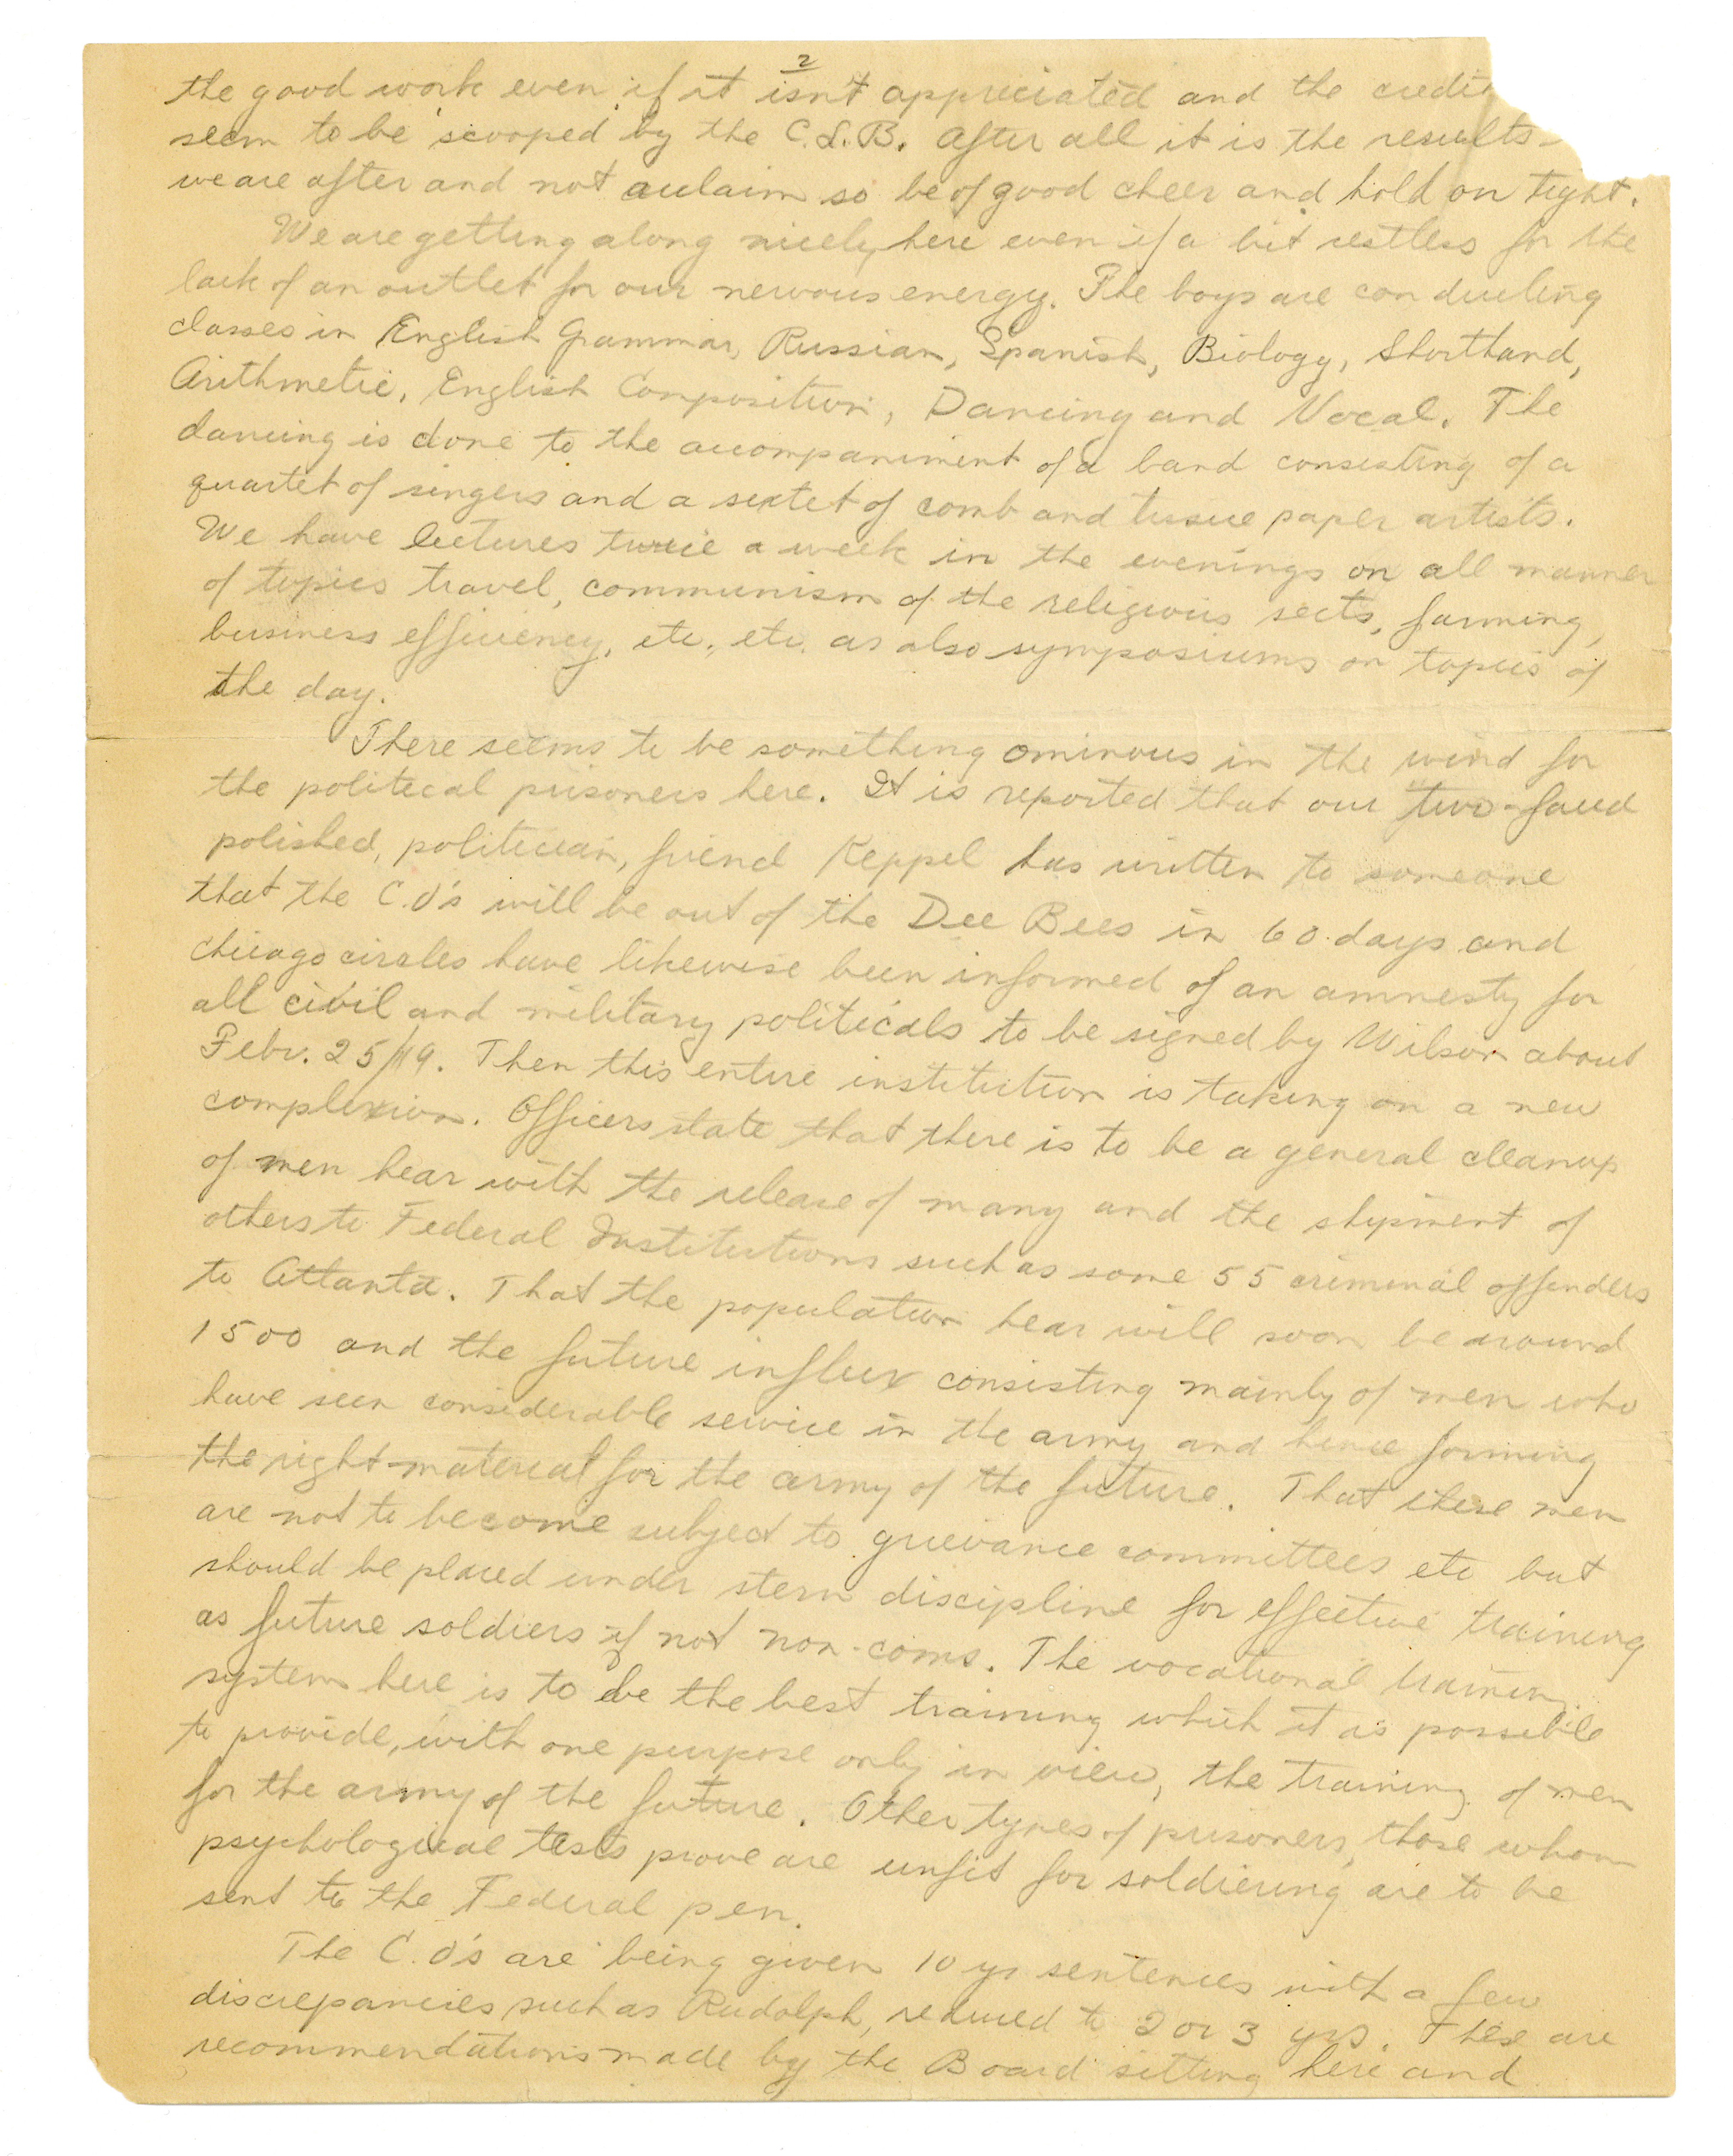 2
the good work even if it isn't appreciated and the credit
seem to be scooped by the C.L.B. After all it is the results
we are after and not aclaim so be of good cheer and hold on tight.
We are getting along nicely here even if a bit restless for the
lack of an outlet for our nervous energy. The boys are conducting
classes in English Grammar, Russian, Spanish, Biology, Shorthand,
Arithmetic, English Composition, Dancing and Vocal. The
dancing is done to the accompaniment of a band consisting of a
quartet of singers and a sextet of comb and tissue paper artists.
We have lectures twice a week in the evenings on all manner
of topics travel, communism of the religious sects, farming,
business efficiency, etc., etc. as also symposiums on topics of
the day.
There seems to be something ominous in the wind for
the political prisoners here. It is reported that our two-faced
polished, politician, friend Keppel has written to someone
that the C.O's will be out of the Dee Bees in 60 days and
Chicago circles have likewise been informed of an amnesty for
all civil and military politicals to be signed by Wilson about
Febr. 25/19. Then this entire institution is taking on a new
complexion. Officers state that there is to be a general cleanup
of men hear with the release of many and the shipment of
others to Federal Institutions such as some 55 criminal offenders
to Atlanta. That the population hear will soon be around
1500 and the future influx consisting mainly of men who
have seen considerable service in the army and hence forming
the right material for the army of the future. That these men
are not to become subject to grievance committees etc but
should be placed under stern discipline for effective training
as future soldiers if not non-coms. The vocational training
system here is to be the best training which it is possible
to provide, with one purpose only in view, the training of men
for the army of the future. Other types of prisoners, those whom
psychological tests prove are unfit for soldiering are to be
sent to the Federal pen.
The C.O's are being given 10 yr sentences with a few
discrepancies such as Rudolph, reduced to 2 or 3 yrs. These are
recommendations made by the Board sitting here and